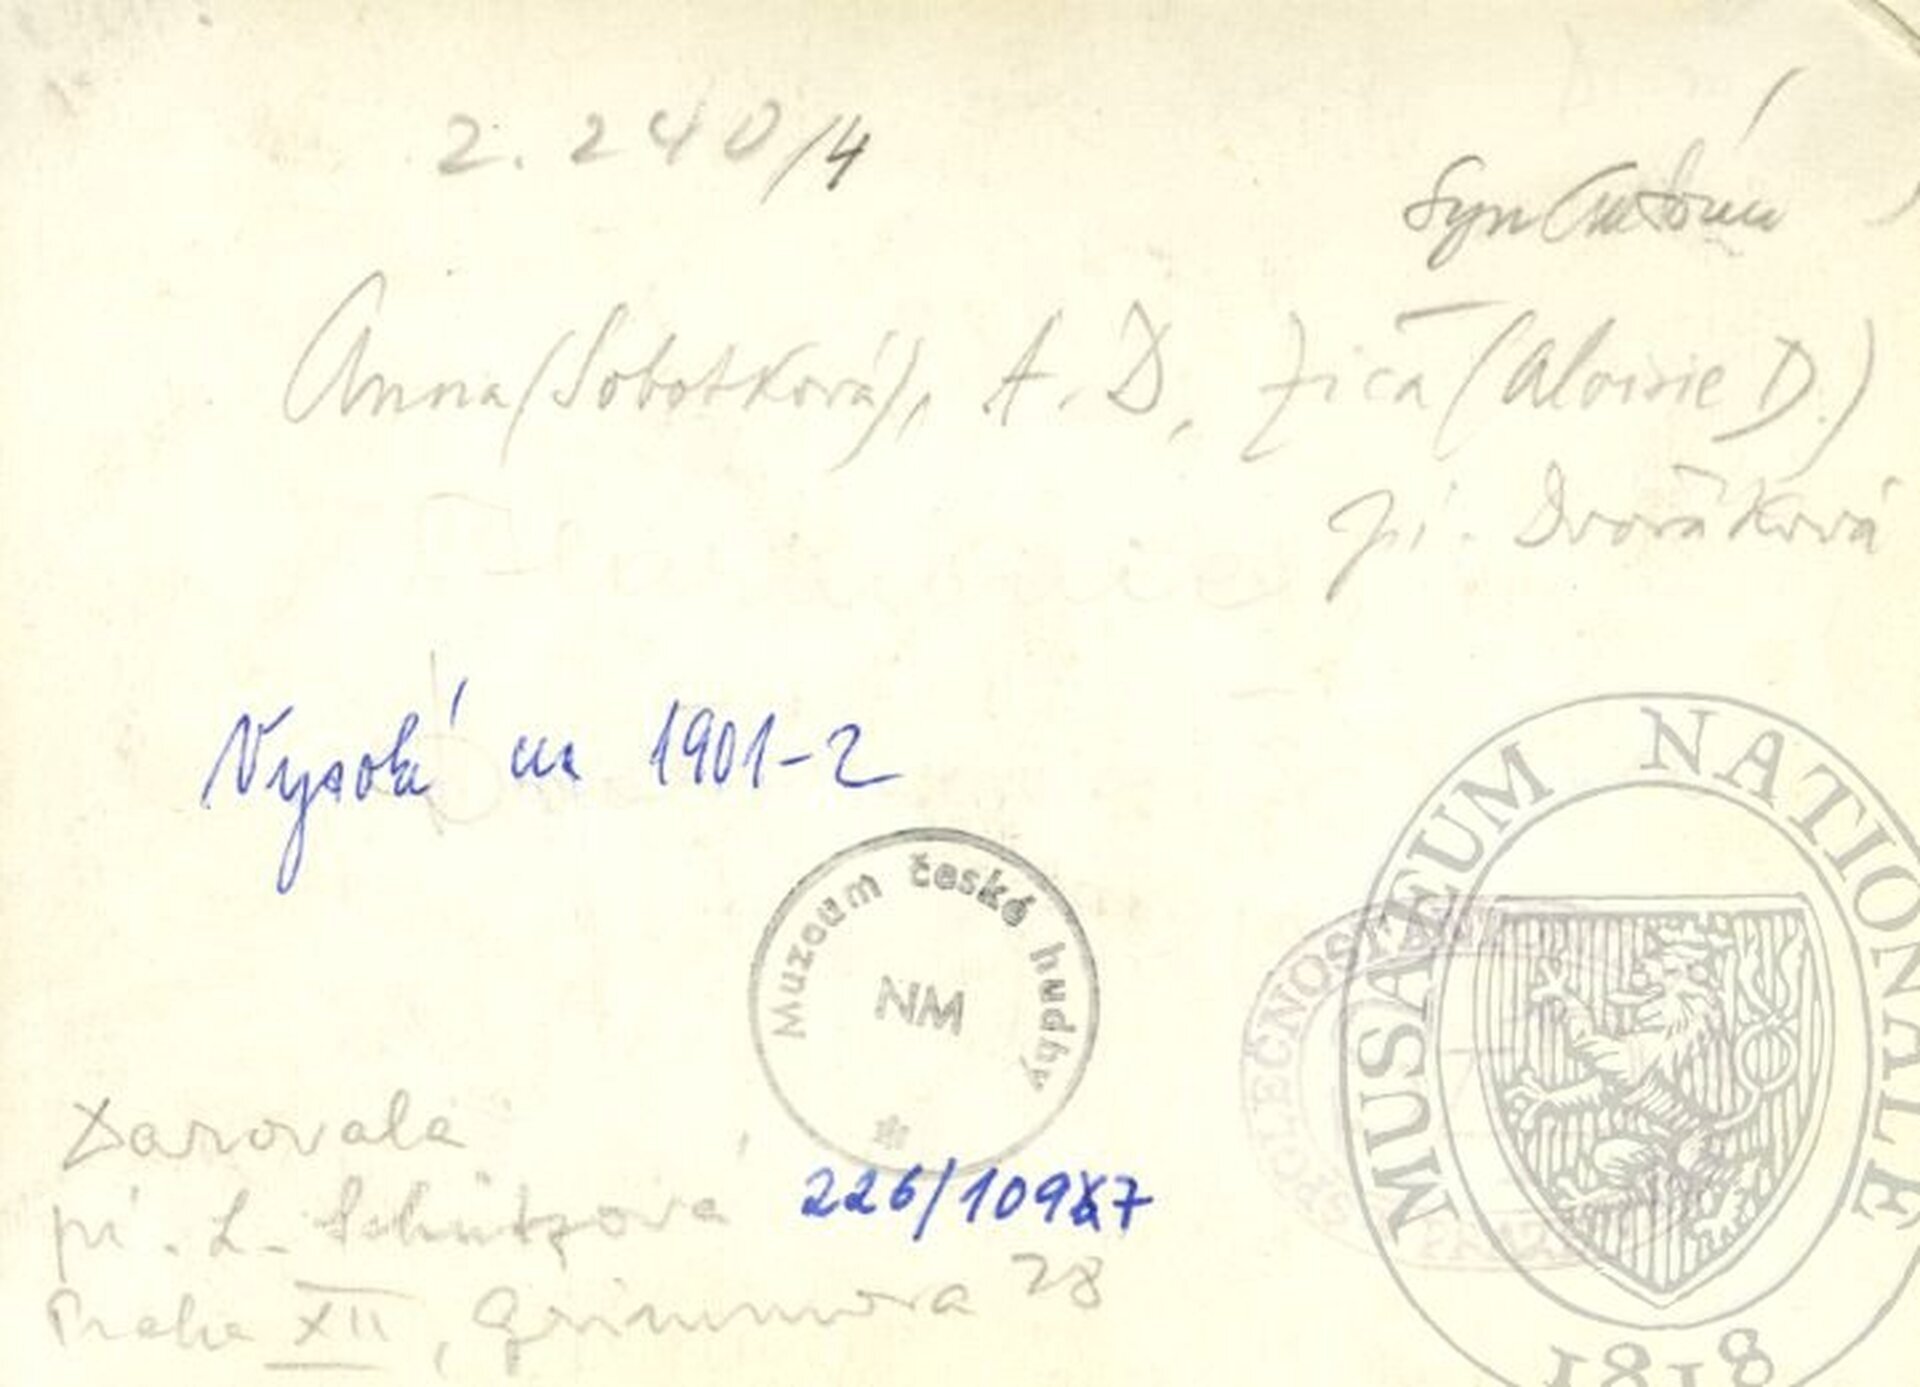 2.240/4
Syn Antonín
Anna (Sobotková), A. D., Zića (Aloisie D.)
pí. Dvořáková
Vysoká 1901-2
Muzeum české hudby
NM
MUSAEUM NATIONALE
1818
SPOLEČNOST ANT
Darovala
pí. L. Schützová
226/10987
Praha XII, Grimmova 28